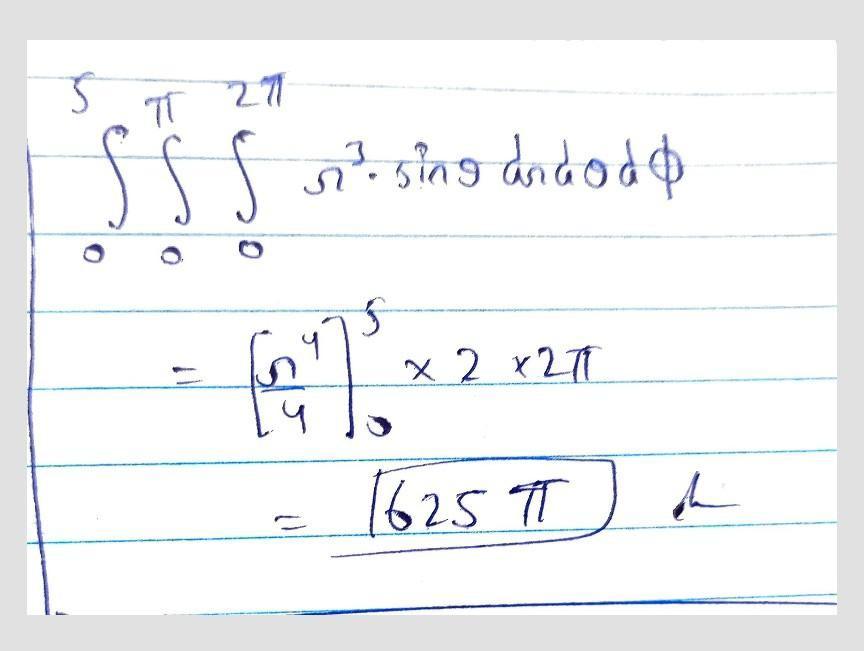 ∫₀⁵ ∫₀^π ∫₀^2π r³. sinθ dr dθ dϕ
= [r⁴/4]₀⁵ × 2 × 2π
= 625 π